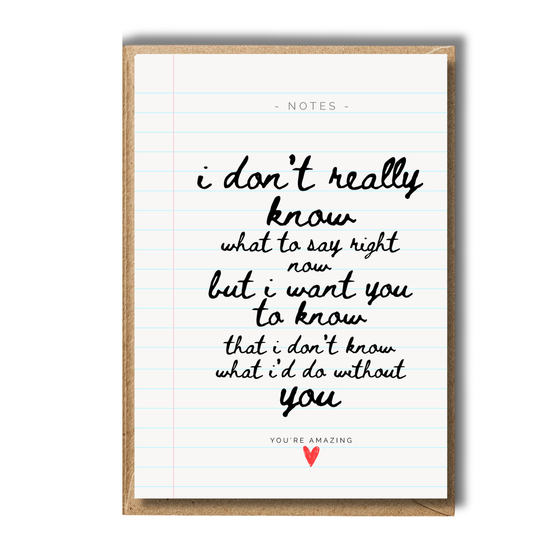 - NOTES -
i don't really
know
what to say right
now
but i want you
to know
that i don't know
what i'd do without
you
YOU'RE AMAZING